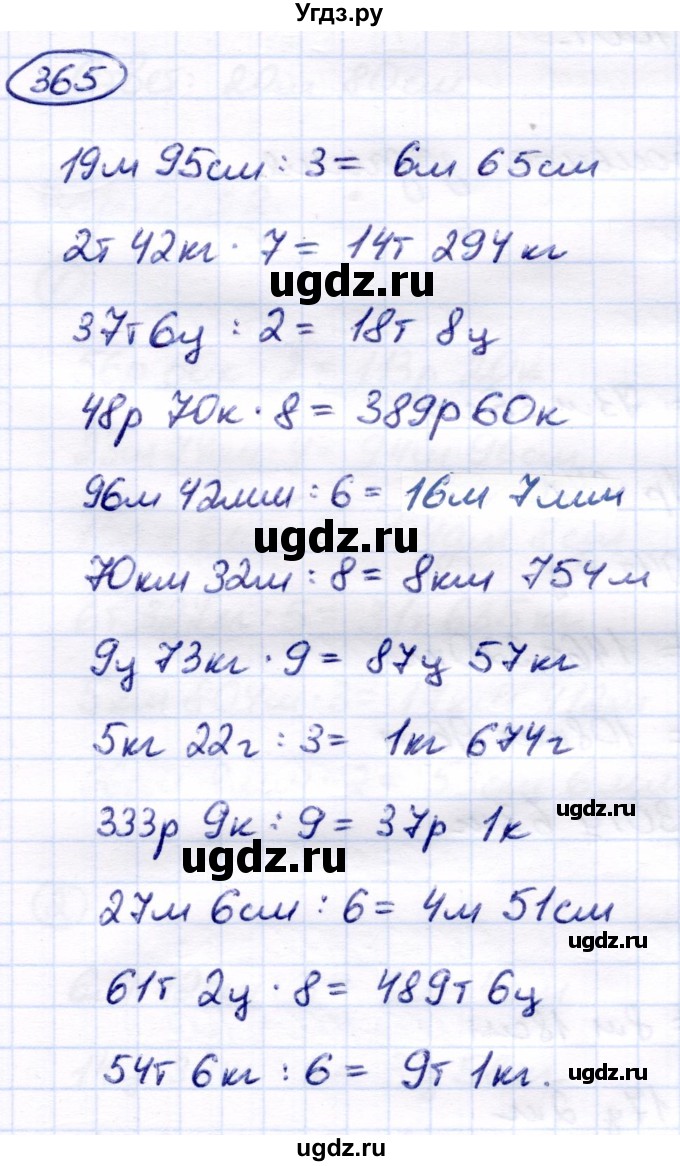 Угдз.ру
365
19м 95см : 3 = 6м 65см
2т 42кг · 7 = 14т 294кг
ugdz.ru
37т 6ц : 2 = 18т 8ц
48р 70к · 8 = 389р 60к
96м 42мм : 6 = 16м 7мм
ugdz.ru
70км 32м : 8 = 8км 754м
9ц 73кг · 9 = 87ц 57кг
5кг 22г : 3 = 1кг 674г
ugdz.ru
333р 9к : 9 = 37р 1к
ugdz.ru
27м 6см : 6 = 4м 51см
ugdz.ru
61т 2ц · 8 = 489т 6ц
54т 6кг : 6 = 9т 1кг.
ugdz.ru
ugdz.ru